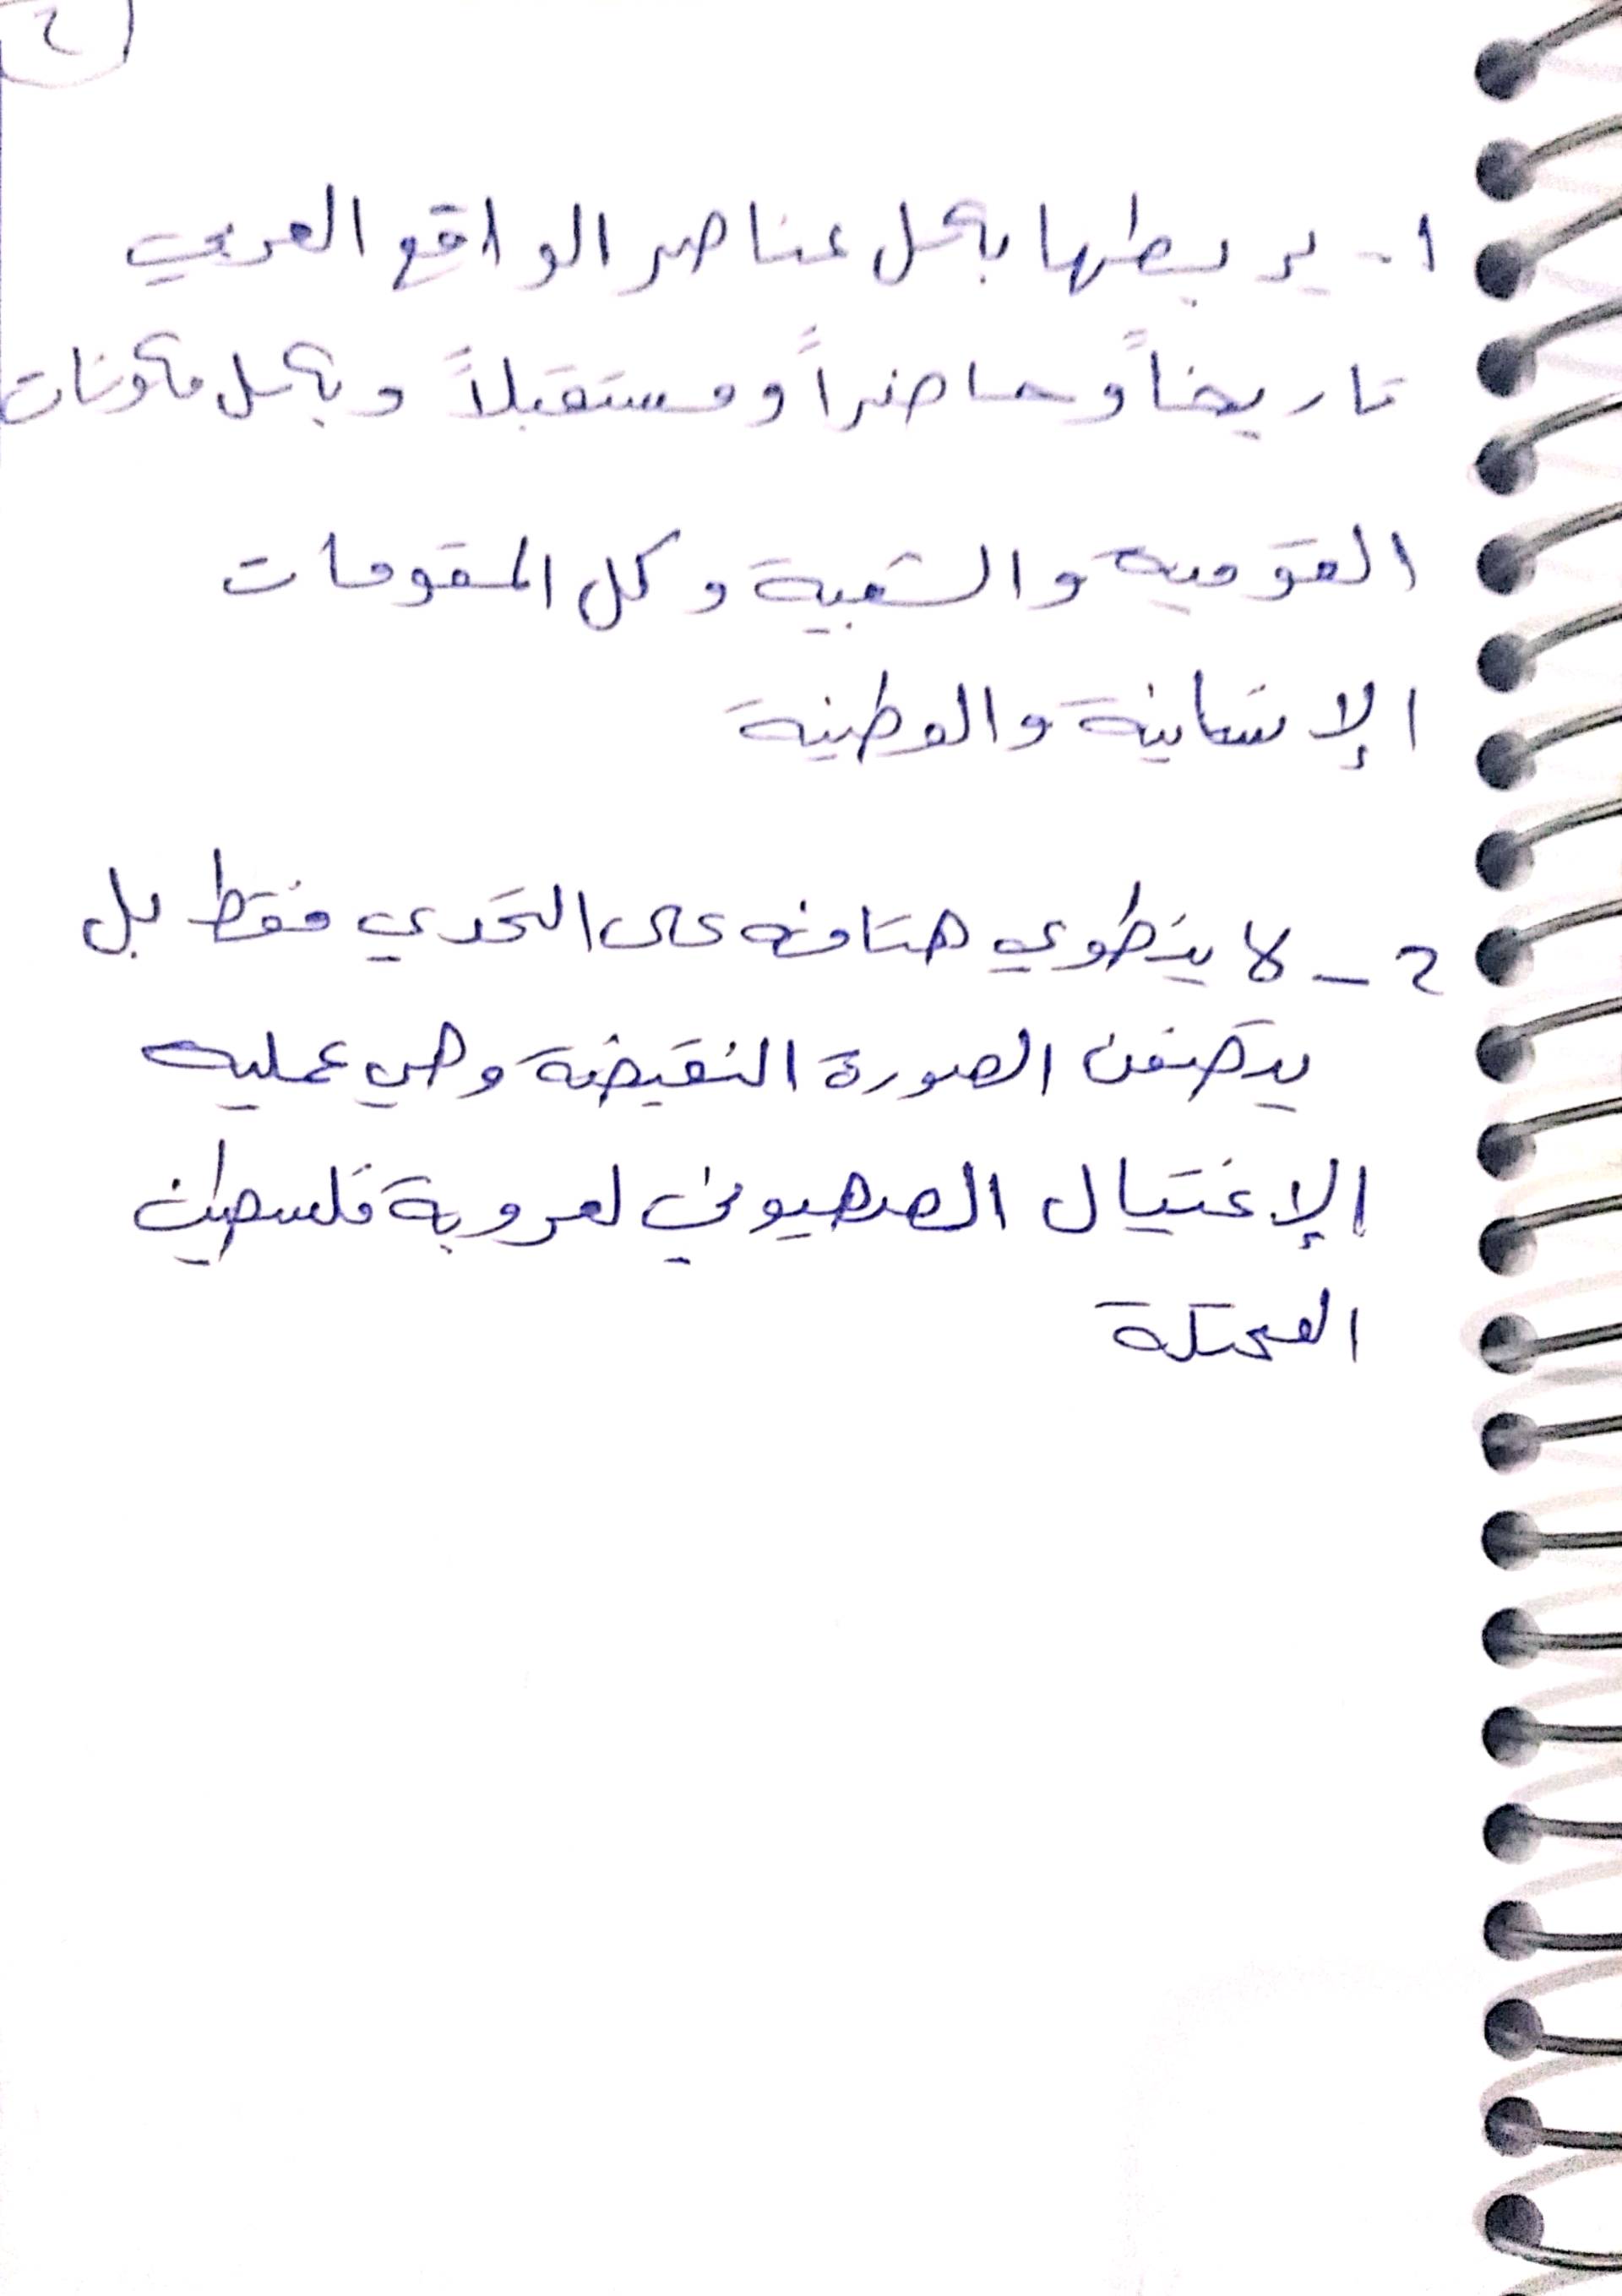 ٢
١- يربطها بكل عناصر الواقع العربي
تاريخاً وحاضراً ومستقبلاً وبكل مكونات
القومية والشعبية وكل المقومات
الإنسانية والوطنية
٢ - لا ينطوي هتافه على التحدي فقط بل
يتضمن الصورة النقيضة وهي عمليه
الإغتيال الصهيوني لعروبة فلسطين
المحتلة